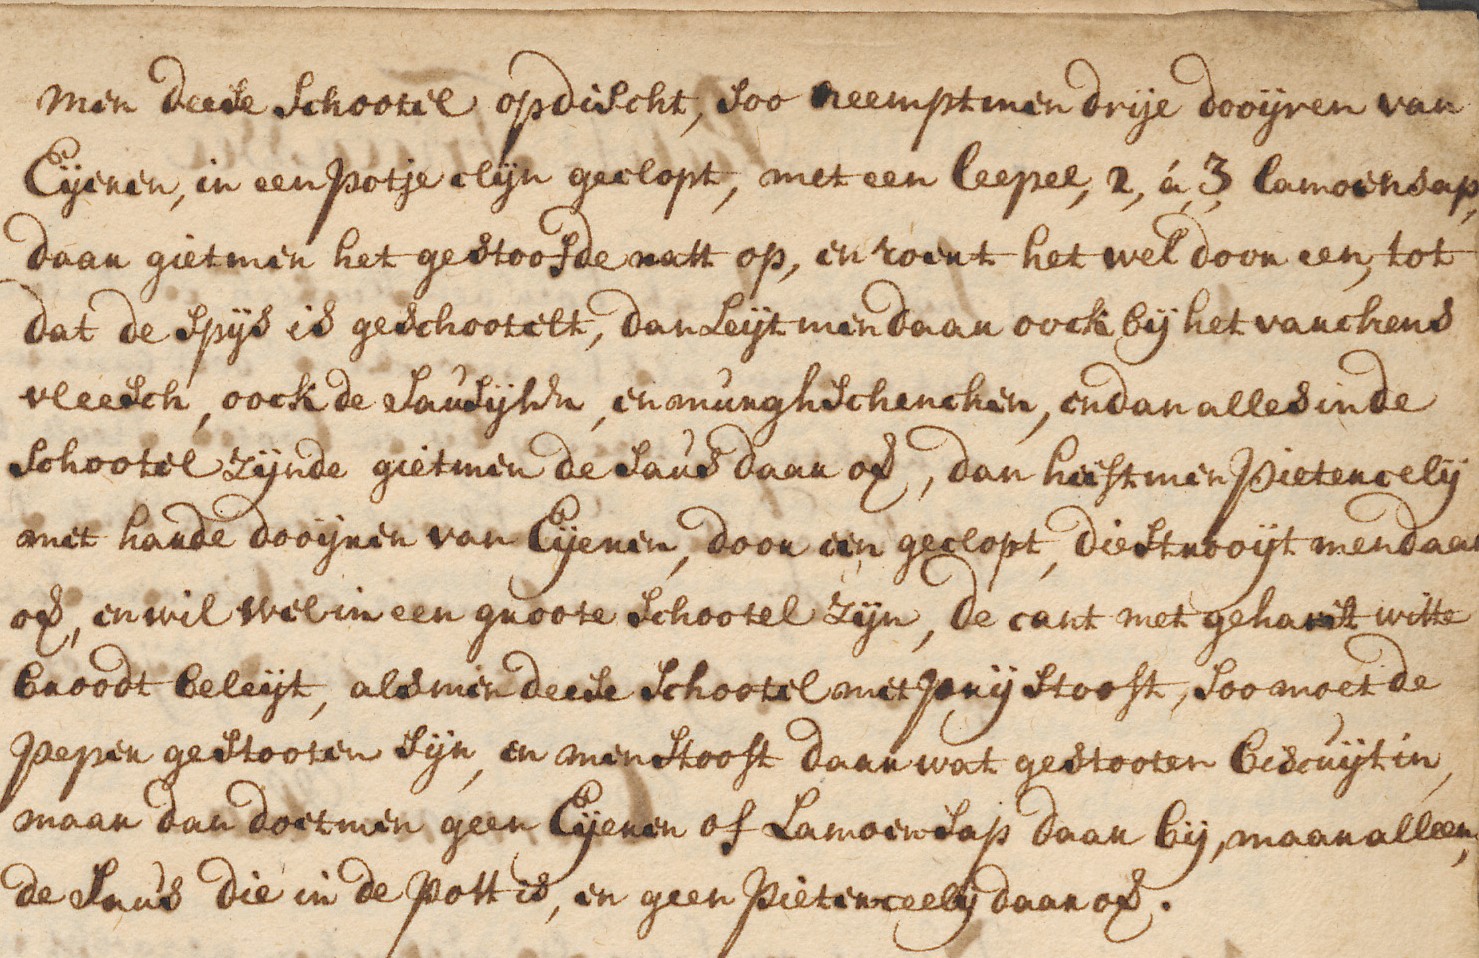 men deese schootel opdischt, soo neempt men drije dooijren van
Eijeren, in een potje clijn geclopt, met een leepel, 2, á, 3, lamoensap,
daar giet men het gestoofde natt op, en roert het wel door een, tot
dat de spijs is geschootelt, dan leijt men daar oock bij het varckens
vleesch, oock de sausijsen, en murghschencken, en dan alles in de
schootel zijnde giet men de saus daar op, dan heeft men pietercely
met harde dooijren van Eijeren, door een geclopt, die strooijt men daar
op, en wil wel in een groote schootel zijn, de cant met gehardt witte
broodt beleijt, als men deese schootel met prij stooft, soo moet de
peper gestooten sijn, en men stooft daar wat gestooten biscuijt in,
maar dan doet men geen Eijeren of Lamoensap daar bij, maar alleen,
de saus die in de pott is, en geen pieterceelij daar op.